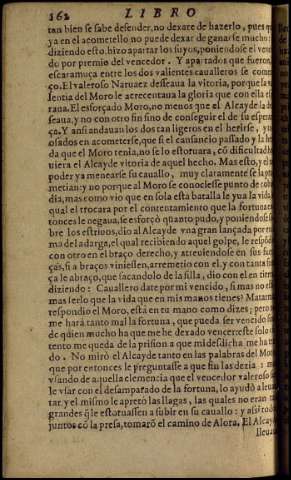 162 LIBRO
tan bien se sabe defender, no dexare de hazerlo, pues q
ya en el acometello no puede dexar de ganarse mucho:
diziendo esto, hizo apartar los suyos, poniendose el
do por premio del vencedor. Y apartados que fueron,
escaramuça entre los dos valientes caualleros se
ço. El valeroso Naruaez desseaua la vitoria, porque la
lentia del Moro le acrecentaua la gloria que con ella
rana. El esforçado Moro, no menos que el Alcayde la
seaua, y no con otro fin sino de conseguir el de su
ça. Y ansi andauan los dos tan ligeros en el herirse, y
osados en acometerse, que si el cansancio passado y la
da que el Moro tenia, no se lo estoruara, cõ dificultad
uiera el Alcayde vitoria de aquel hecho. Mas esto, y el
poder ya menearse su cauallo, muy claramente se la
metian: y no porque al Moro se conociesse punto de
dia, mas como vio que en sola esta batalla le yua la vida,
qual el trocara por el contentamiento que la fortuna
tonces le negaua, se esforçò quanto pudo, y poniendose
bre los estriuos, dio al Alcayde vna gran lançada por
ma del adarga, el qual recibiendo aquel golpe, le respõdi
con otro en el braço derecho, y atreuiendose en sus
ças, si a braços viniessen, arremetio con el, y con tanta
ça le abraço, que sacandolo de la silla, dio con el en
diziendo: Cauallero date por mi vencido, si mas no
mas serlo que la vida que en mis manos tienes? Matarme
respondio el Moro, está en tu mano como dizes; pero
me hará tanto mal la fortuna, que pueda ser vencido
de quien mucho ha que me he dexado vencer: este solo
tento me queda de la prision a que mi desdicha me ha
do. No mirò el Alcayde tanto en las palabras del Moro
que por entonces le preguntasse a que fin las dezia:
vsando de aquella clemencia que el vencedor valeroso
le vsar con el desamparado de la fortuna, lo ayudò a
tar, y el mismo le apretò las llagas, las quales no eran
grandes q̃ le estoruassen a subir en su cauallo: y assi
juntos cõ la presa, tomarõ el camino de Alora. El Alcayde
lleua